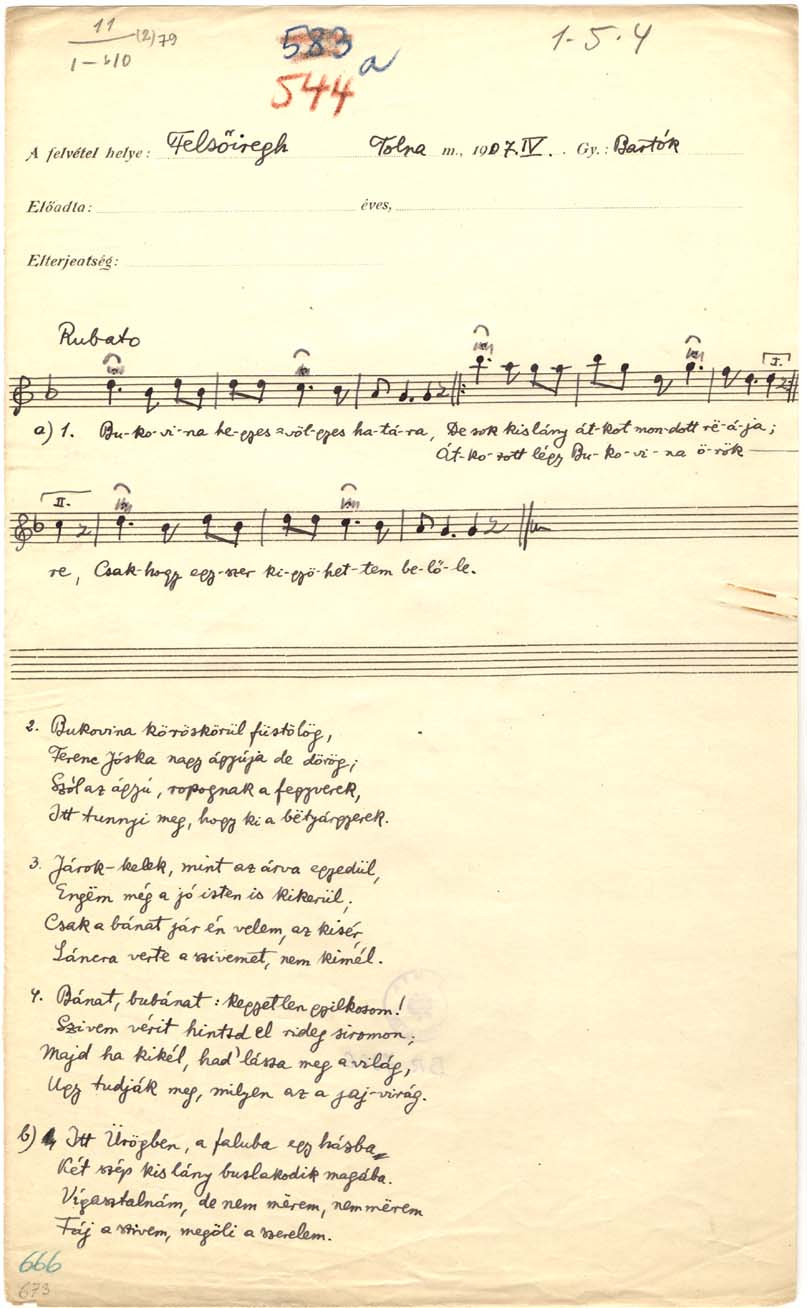 11 (2) 79
1-610
583 a
544
1-5-4
A felvétel helye: Felsőiregh Tolna m., 1907.IV. Gy.: Bartók
Előadta: éves,
Elterjedtség:
Rubato
I.
a) 1. Bu-ko-vi-na he-gyes-völ-gyes ha-tá-ra, De sok kislány át-kot mon-dott rë-á-ja;
Át-ko-zott légy Bu-ko-vi-na ö-rök
II.
re, Csak-hogy egy-szer ki-gyö-het-tem be-lő-le.
2. Bukovina köröskörül füstölög,
Ferenc Jóska nagy ágyúja de dörög;
Szól az ágyú, ropognak a fegyverek,
Itt tunnyi meg, hogy ki a bëtyárgyerek.
3. Járok-kelek, mint az árva egyedül,
Engëm még a jó isten is kikerül;
Csak a bánat jár én velem, az kisér,
Láncra verte a szivemet, nem kimél.
4. Bánat, bubánat: kegyetlen gyilkosom!
Szivem vérit hintsd el rideg siromon;
Majd ha kikél, had' lássa meg a világ,
Ugy tudják meg, milyen az a jaj-virág.
b) Itt Ürögben, a faluba egy házba
Két szép kislány buslakodik magába.
Vigasztalnám, de nem mërem, nem mërem
Fáj a szivem, megöli a szerelem.
666
673